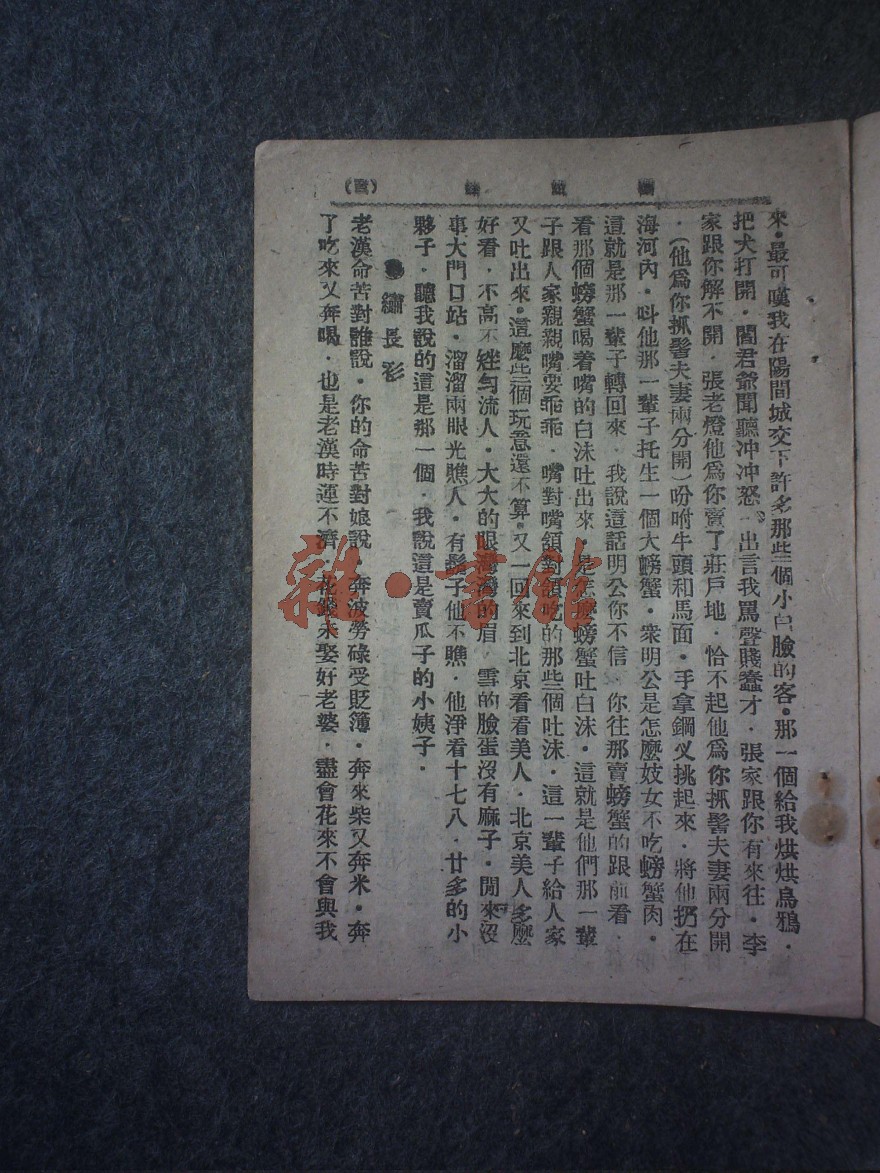 來·最可嘆我在陽間城交下許多那些個小白臉的客·那一個給我烘烘烏鴉·
把犬打開·閻君爺聞聽冲冲怒·出言我罵聲賤蠢才·張家跟你有來往·李
家跟你解不開·張老燈他爲你賣了莊戶地·恰不起他爲你抓髻夫妻兩分開
·(他爲你抓髻夫妻兩分開)吩咐牛頭和馬面·手拿鋼叉挑起來·將他扔在
海河內·叫他那一輩子托生一個大螃蟹·衆明公是怎麼妓女不吃螃蟹肉·
這就是那一輩子轉回來·我說這話明公你不信·你往那賣螃蟹的跟前看·
看那個螃蟹喝着嘴的白沫吐出來·是怎麼螃蟹吐白沫·這就是他們那一輩
子跟人家親親嘴要乖乖·嘴對嘴頷對頷吃的那些個吐沫·這一輩子給人家
又吐出來·這麼些個玩意還不算·又一回來到北京看看美人·北京美人多麼
好看·不高不矬勻流人·大大的眼灣灣的眉·雪的臉蛋沒有麻子·閒來沒
事大門口站·溜溜兩眼光瞧人·有鬍子他不瞧·他淨看十七八·廿多的小
夥子·聽我說的這是那一個·我說這是賣瓜子的小姨子·
●繡長衫
老漢命苦對誰說·你的命苦對娘說 奔波勞碌受貶簿·奔來柴又奔米·奔
了吃來又奔喝·也是老漢時運不濟 花錢未娶好老婆·盡會花來不會與我
雜·書館